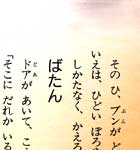 その ひ、ブンが ど
いえは、ひどい ぼろ
しかたなく、かえろ
ばたん
ドアが あいて、こ
「そこに だれか いる